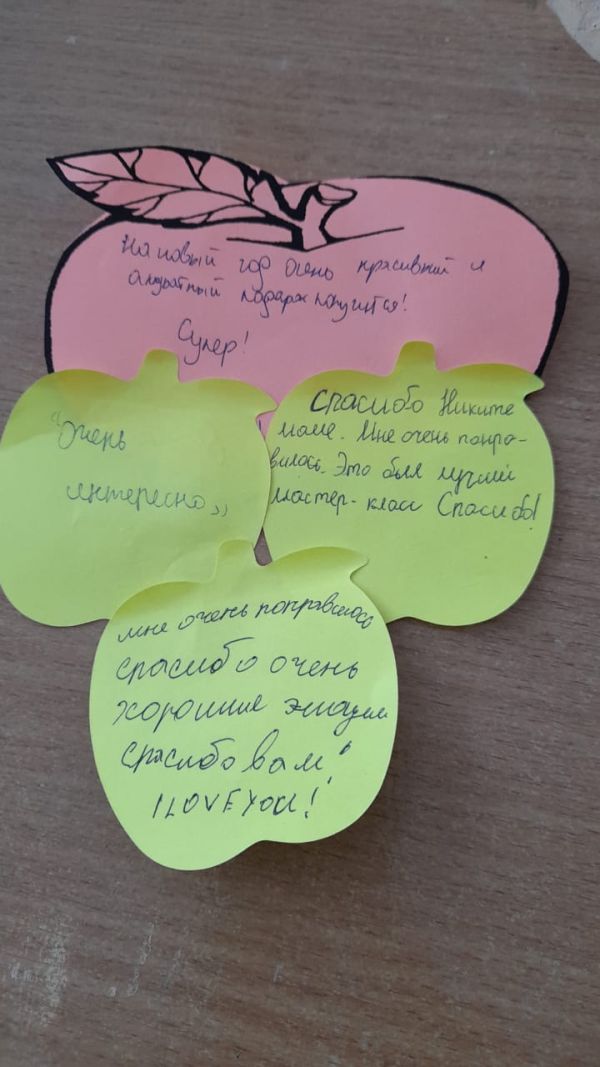 На новый год очень красивый и
аккуратный подарок получится!
Супер!
"Очень
интересно"
Спасибо Никите
маме. Мне очень понра-
вилось. Это был лучший
мастер-класс Спасибо!
мне очень понравилось
спасибо очень
хорошие эмоции
спасибо вам!
I LOVE YOU!